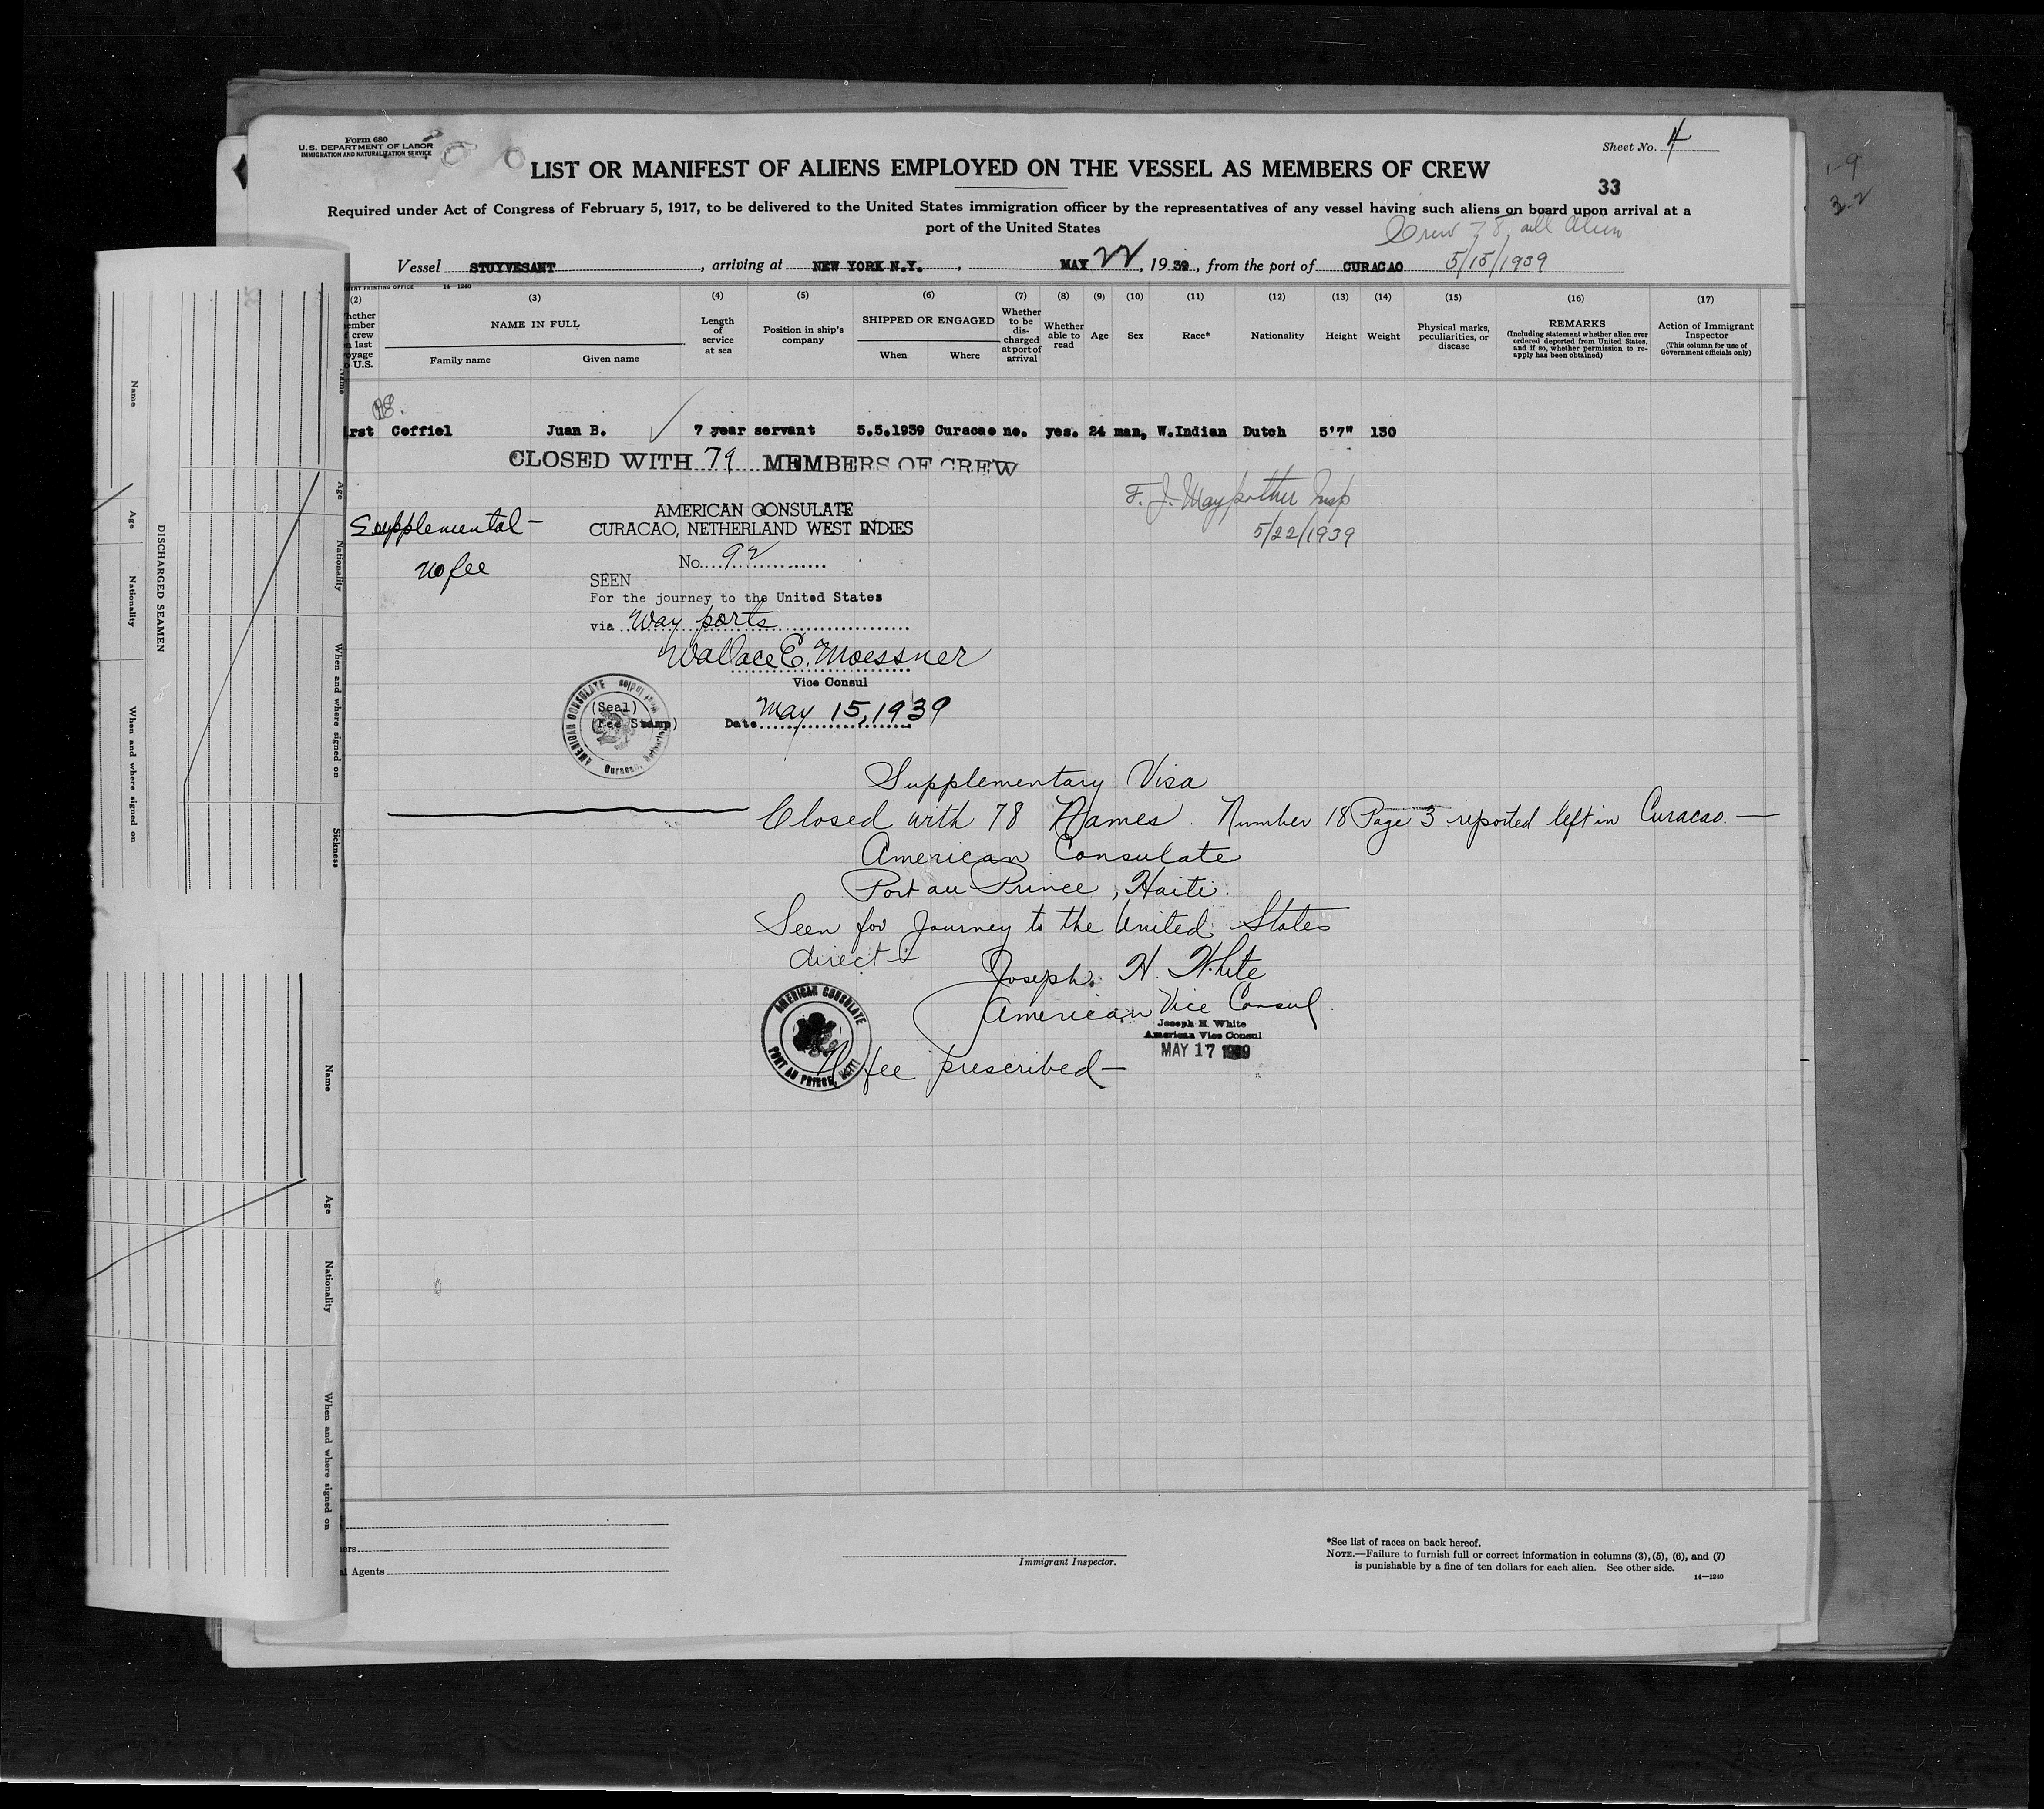 Form 680
U. S. DEPARTMENT OF LABOR
IMMIGRATION AND NATURALIZATION SERVICE
Sheet No. 4
LIST OR MANIFEST OF ALIENS EMPLOYED ON THE VESSEL AS MEMBERS OF CREW
33
1-9
3-2
Required under Act of Congress of February 5, 1917, to be delivered to the United States immigration officer by the representatives of any vessel having such aliens on board upon arrival at a
port of the United States
Crew 78, all Alien
Vessel STUYVESANT, arriving at NEW YORK N.Y., MAY 22, 1939, from the port of CURACAO 5/15/1939
MENT PRINTING OFFICE 14—1240
(2) (3) (4) (5) (6) (7) (8) (9) (10) (11) (12) (13) (14) (15) (16) (17)
hether
ember
crew
n last
oyage
U.S.
NAME IN FULL
Family name Given name
Length of service at sea
Position in ship's company
SHIPPED OR ENGAGED
When Where
Whether to be discharged at port of arrival
Whether able to read
Age
Sex
Race*
Nationality
Height
Weight
Physical marks, peculiarities, or disease
REMARKS
(Including statement whether alien ever ordered deported from United States, and if so, whether permission to reapply has been obtained)
Action of Immigrant Inspector
(This column for use of Government officials only)
rst Coffiel Juan B. 7 year servant 5.5.1939 Curacao no. yes. 24 man, W.Indian Dutch 5'7" 130
CLOSED WITH 79 MEMBERS OF CREW
F. J. Maypother Insp
5/22/1939
Supplemental —
No fee
AMERICAN CONSULATE
CURACAO, NETHERLAND WEST INDIES
No. 92
SEEN
For the journey to the United States
via Way ports
Wallace E. Moessner
Vice Consul
(Seal)
(Fee Stamp)
AMERICAN CONSULATE
Date May 15, 1939
Supplementary Visa
Closed with 78 Names. Number 18 Page 3 reported left in Curacao. —
American Consulate
Port au Prince, Haiti.
Seen for Journey to the United States
direct
Joseph H. White
American Vice Consul.
Joseph H. White
American Vice Consul
MAY 17 1939
AMERICAN CONSULATE
PORT AU PRINCE, HAITI
No fee prescribed —
DISCHARGED SEAMEN
Name
Age
Nationality
When and where signed on
Name
Age
Nationality
When and where signed on
Sickness
Name
Age
Nationality
When and where signed on
ers
al Agents
Immigrant Inspector.
*See list of races on back hereof.
NOTE.—Failure to furnish full or correct information in columns (3), (5), (6), and (7)
is punishable by a fine of ten dollars for each alien. See other side.
14—1240